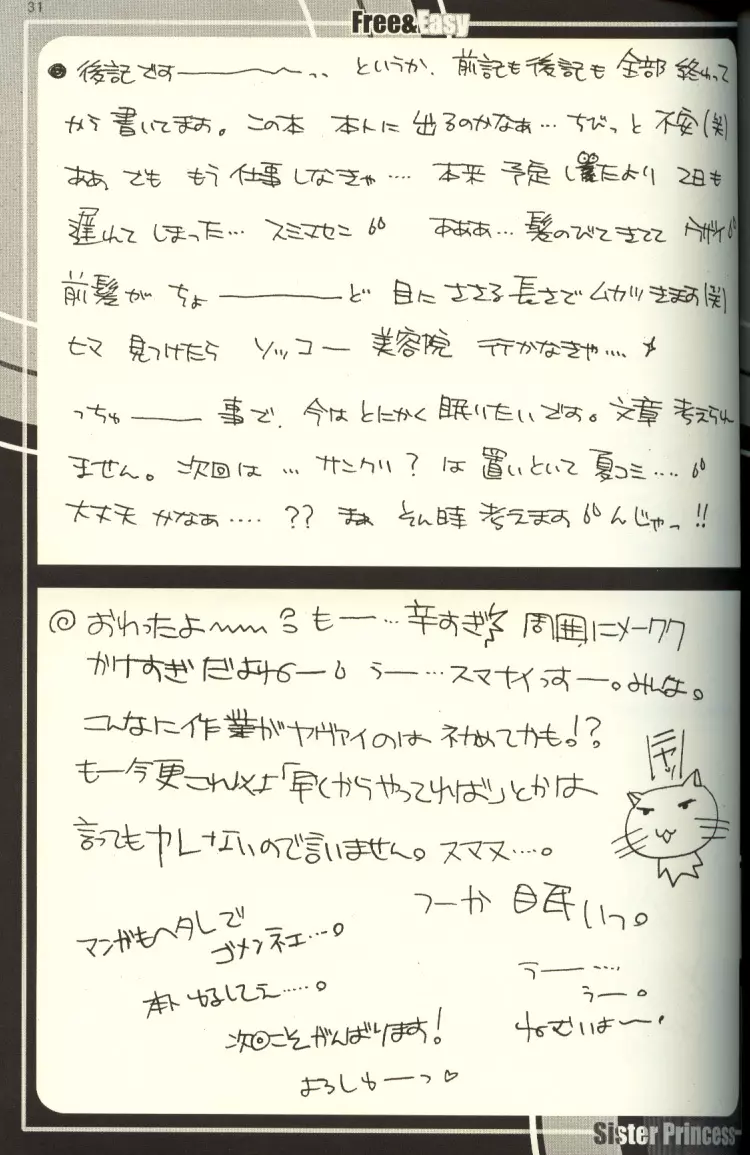 31
Free&Easy
後記です――――〜〜‥ というか、前記も後記も全部終わって
から書いてます。この本 本トに出るのかなぁ…ちびっと不安(笑)
ああ、でも もう仕事しなきゃ…. 本来予定したより2日も
遅れてしまった… スミマセン あああ…髪のびてきてて ウザイ
前髪がちょ――――ど 目にささる長さでムカツきます(笑)
ヒマ 見つけたら ソッコー 美容院 行かなきゃ….
っちゅ――― 事で、今はとにかく眠りたいです。文章考えられ
ません。次回は …サンクリ? は置いといて夏コミ….
大丈夫かなぁ…. ?? まぁ そん時考えます んじゃっ!!
おわったよ〜〜 もー…辛すぎ 周囲にメーワク
かけすぎだよ うー…スマナイっすー。みんな。
こんなに作業がヤヴァイのは初めてかも!?
もー今更これ以上「早くからやってれば」とかは
言ってもヤレないので言いません。スマヌ….。
ニヤッ
つーか 眠いっ。
マンガもヘタレで
ゴメンネェ…。
うー―….
うー。
本ト
ねむいよ〜
次回こそがんばります!
よろしゅーっ♡
Sister Princess